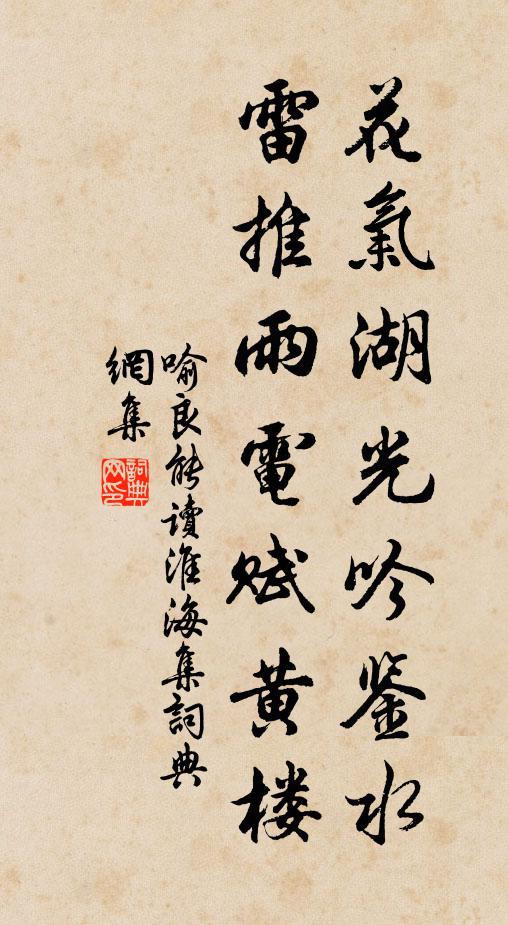 花氣湖光吟鉴水
雷推雨電賦黄楼
喻良能讀淮海集詞典
網集
詞典网印